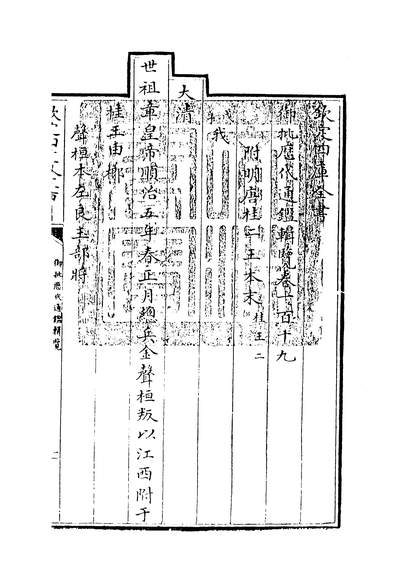 欽定四庫全書
御批歴代通鑑輯覽卷一百十九
附明唐桂二王本末桂王二
我
大清
世祖章皇帝順治五年春正月總兵金聲桓叛以江西附于
桂王由榔
聲桓本左良玉部將
御批歴代通鑑輯覽
一